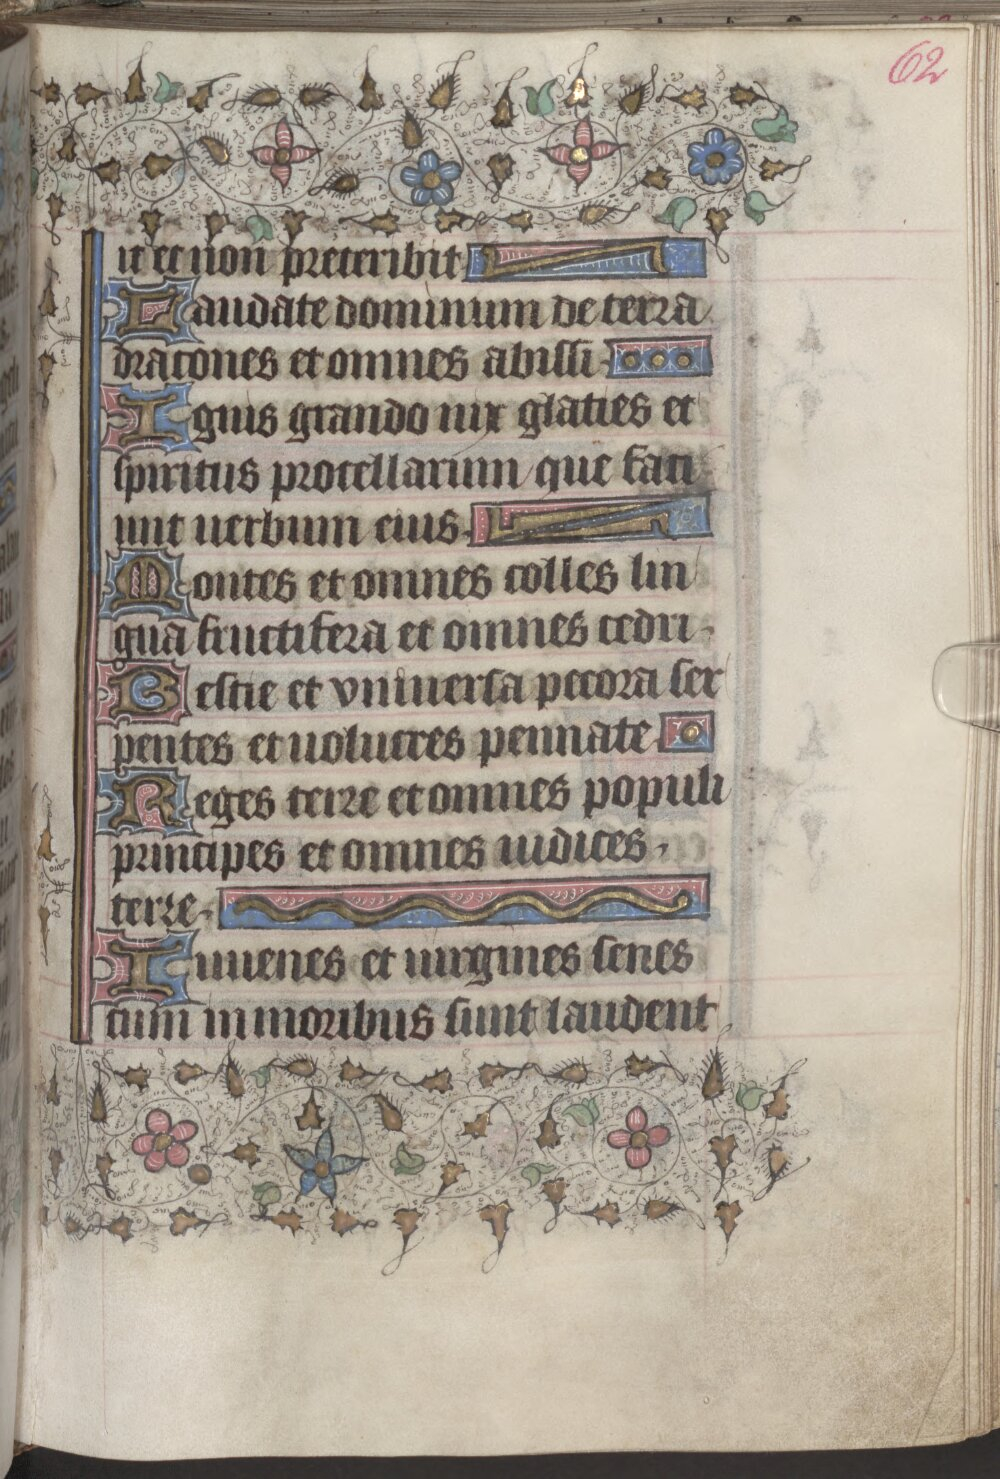 62
it et non preteribit
Laudate dominum de terra
dracones et omnes abissi
Ignis grando nix glaties et
spiritus procellarum que faci
unt uerbum eius
Montes et omnes colles lin
gua fructifera et omnes cedri
Bestie et vniuersa pecora ser
pentes et uolucres pennate
Reges terre et omnes populi
principes et omnes iudices
terre
Iuuenes et uirgines senes
cum iunioribus sunt laudent